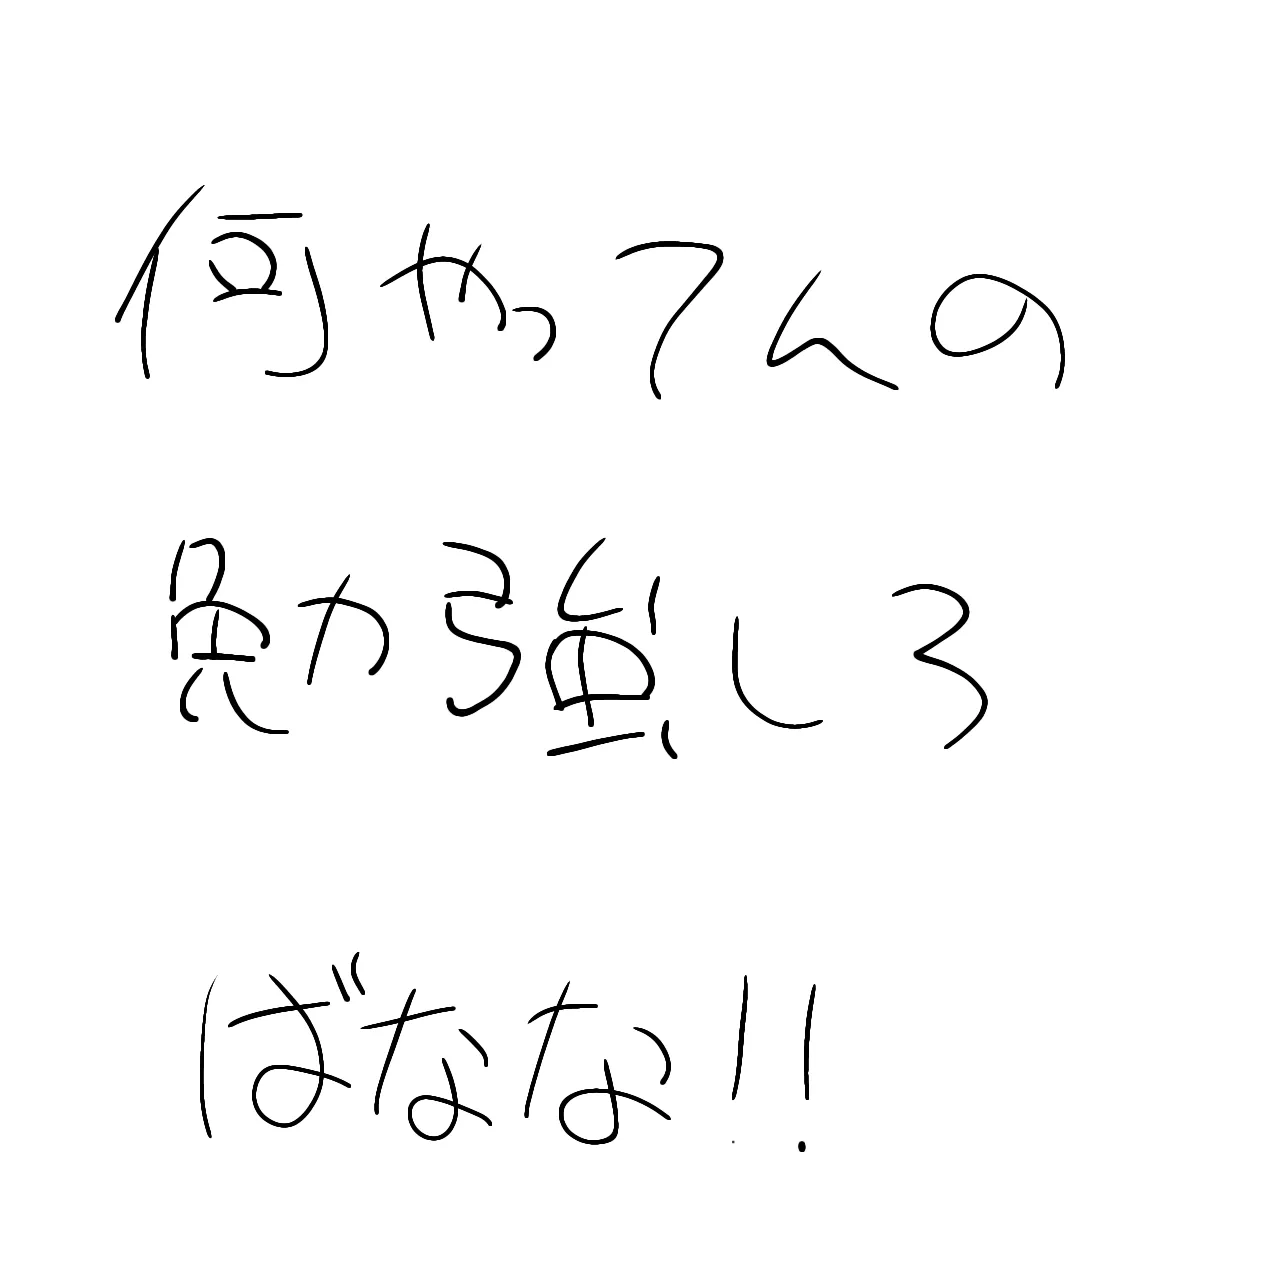 何やってんの
勉強しろ
ばなな!!